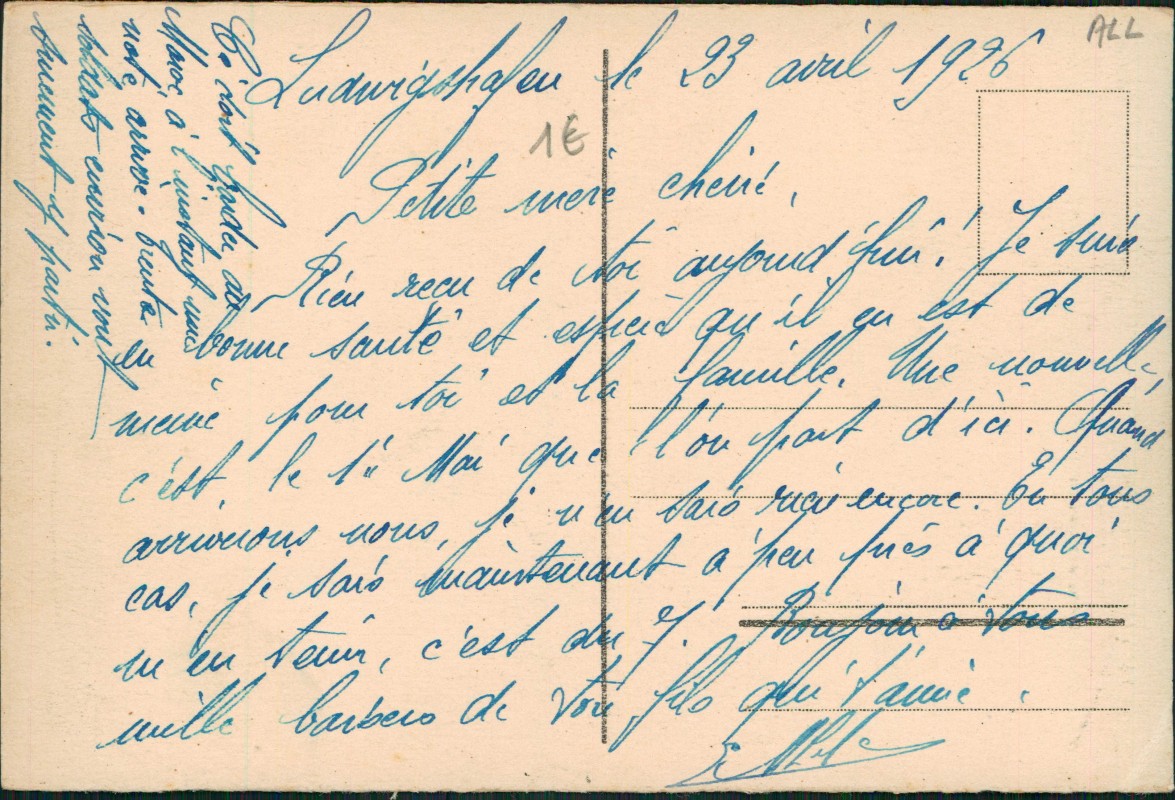 ALL
1€
Ludwigshafen le 23 avril 1926
Petite mère chérie,
Rien reçu de toi aujourd'hui. Je suis
en bonne santé et espère qu'il en est de
même pour toi et la famille. Une nouvelle,
c'est le 1er Mai que l'on part d'ici. Quand
arriverons nous, je n'en sais rien encore. En tous
cas, je sais maintenant à peu près à quoi
m'en tenir, c'est du 7. Bonjour à tous
mille baisers de ton fils qui t'aime.
Marc à l'instant une
note arrive. trente
soldats environ vont